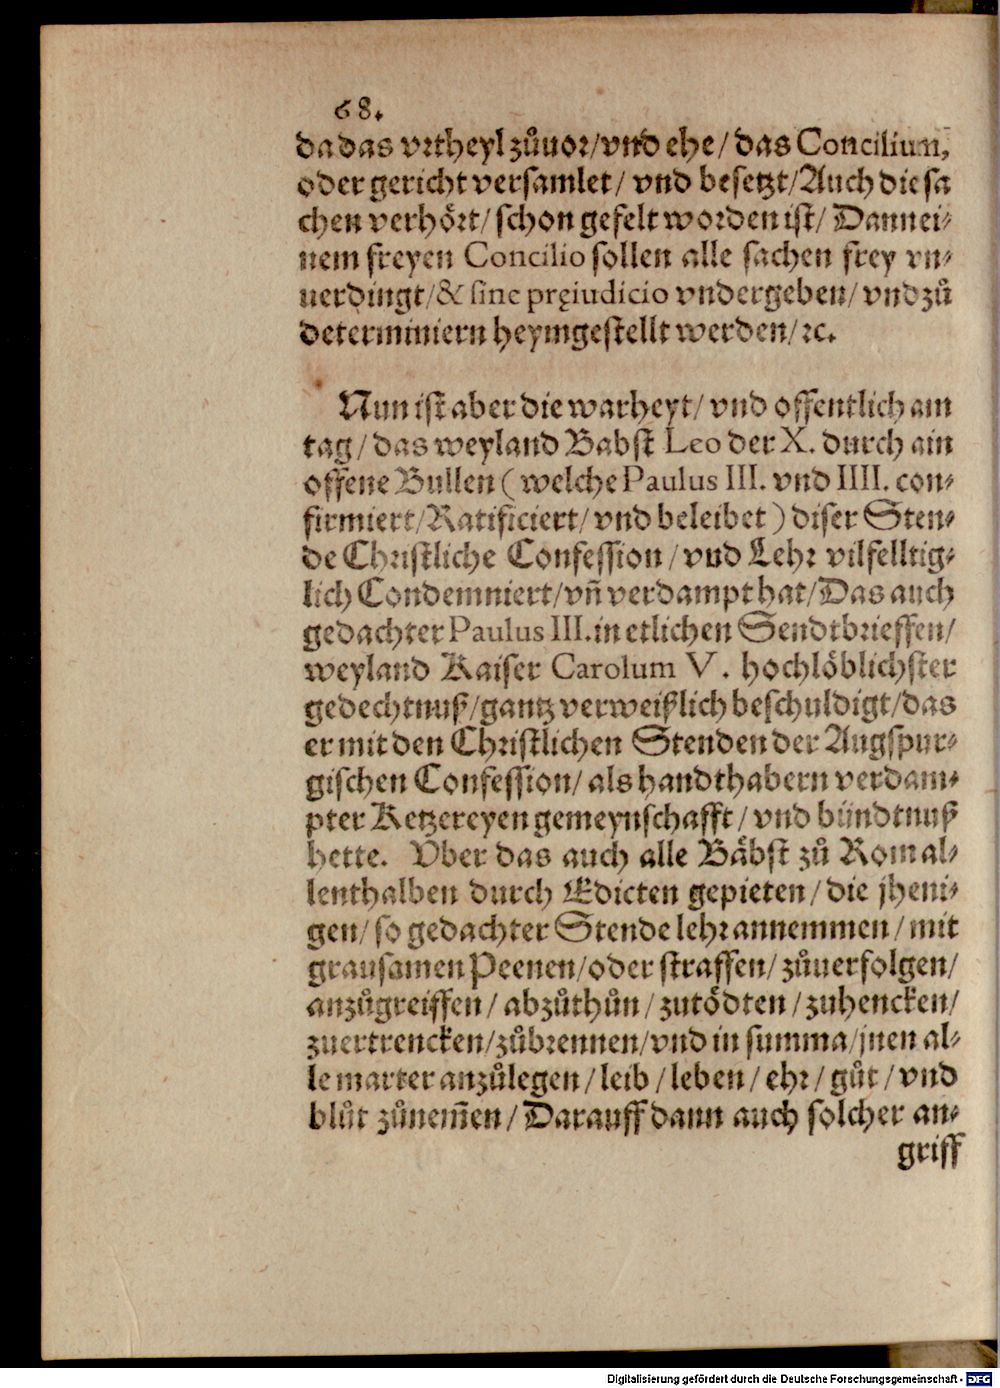 68.
da das vrtheyl zůuor/vnd ehe/ das Concilium,
oder gericht versamlet/ vnd besetzt/Auch die sa
chen verhört/ schon gefelt worden ist/ Dann ei-
nem freyen Concilio sollen alle sachen frey vn-
uerdingt/& sine pręiudicio vndergeben/ vnd zů
determiniern heymgestellt werden/ꝛc.
Nun ist aber die warheyt/ vnd offentlich am
tag/ das weyland Babst Leo der X. durch ain
offene Bullen ( welche Paulus III. vnd IIII. con-
firmiert/Ratificiert/ vnd beleibet ) diser Sten-
de Christliche Confession/ vnd Lehr vilfelltig-
lich Condemniert/vn̄ verdampt hat/Das auch
gedachter Paulus III. in etlichen Sendtbrieffen/
weyland Kaiser Carolum V. hochlöblichster
gedechtnuß/gantz verweißlich beschuldigt/das
er mit den Christlichen Stenden der Augspur-
gischen Confession/ als handthabern verdam-
pter Ketzereyen gemeynschafft/ vnd bündtnuß
hette. Vber das auch alle Bäbst zů Rom al-
lenthalben durch Edicten gepieten/ die jheni-
gen/ so gedachter Stende lehr annemmen/ mit
grausamen Peenen/oder straffen/ zůuerfolgen/
anzůgreiffen/ abzůthůn/ zutödten/ zuhencken/
zuertrencken/zůbrennen/vnd in summa/jnen al-
le marter anzůlegen/ leib/ leben/ ehr/ gůt/ vnd
blůt zůnem̄en/ Darauff dann auch solcher an-
griff
Digitalisierung gefördert durch die Deutsche Forschungsgemeinschaft - DFG